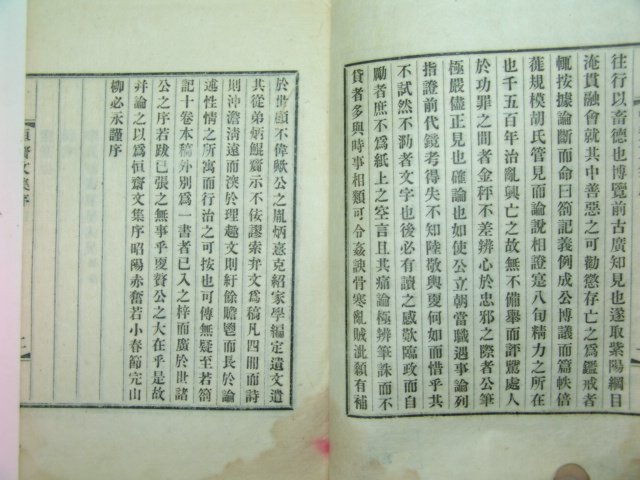 往行以畜德也博覽前古廣知見也遂取紫陽綱目
淹貫融會就其中善惡之可勸懲存亡之爲鑑戒者
輒按據論斷而命曰箚記義例成公博議而篇帙倍
蓰規模胡氏管見而論說相證寔八旬精力之所在
也千五百年治亂興亡之故無不備擧而評騭處人
於功罪之間者金秤不差辨心於忠邪之際者公筆
極嚴儘正見也確論也如使公立朝當職遇事論列
指證前代鏡考得失不知陸敬輿夐何如而惜乎其
不試然不泐者文字也後必有讀之感歎臨政而自
勵者庶不爲紙上之空言且其痛論極辨筆誅而不
貸者多與時事相類可令姦諛骨寒亂賊泚顙有補
於世顧不偉歟公之胤炳憙克紹家學編定遺文遣
其從弟炳鯤齎示不佞謬索弁文爲稿凡四冊而詩
則沖澹淸遠而浹於理趣文則紆餘贍鬯而長於論
述性情之所寓而行治之可按也可傳無疑至若箚
記十卷本稿外別爲一書者已入之梓而廣於世諸
公之序若跋已張之無事乎更贅公之大在乎是故
幷論之以爲恒齋文集序昭陽赤奮若小春節完山
柳必永謹序
恒齋文集序
二